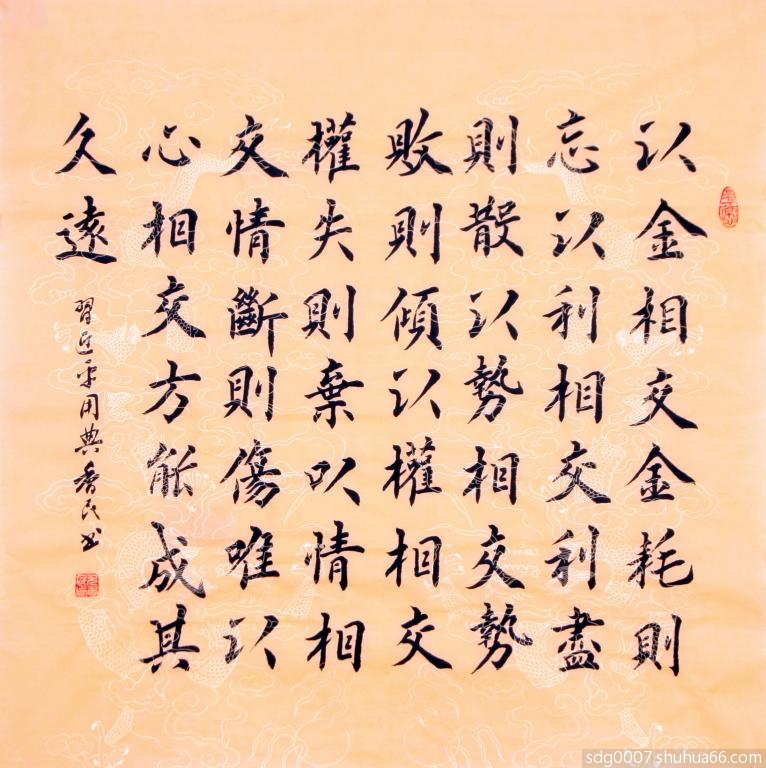 以金相交金耗則
忘以利相交利盡
則散以勢相交勢
敗則傾以權相交
權失則棄以情相
交情斷則傷唯以
心相交方能成其
久遠
習近平用典香民书
sdg0007.shuhua66.com